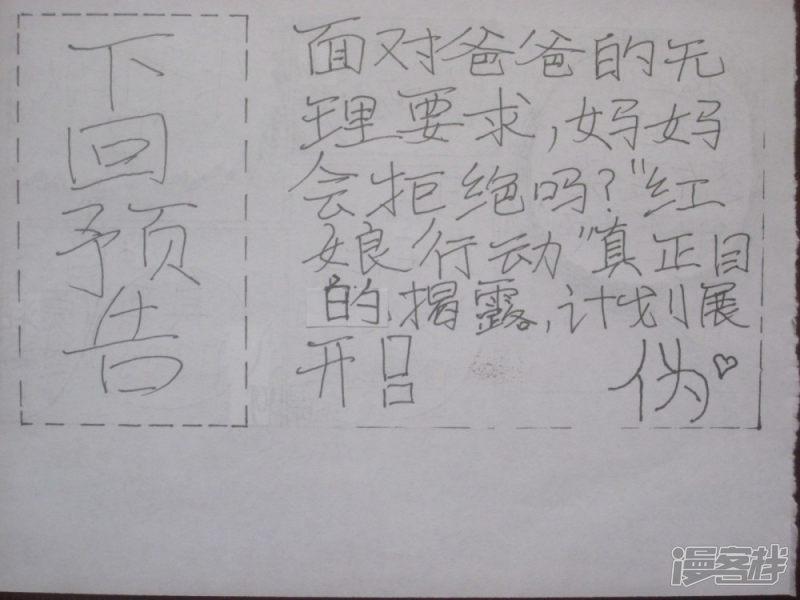 下回预告
面对爸爸的无
理要求,妈妈
会拒绝吗?"红
娘行动"真正目
的揭露,计划展
开!
伪♡
漫客栈